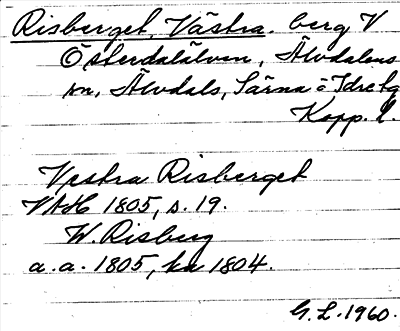 Risberget, Västra. berg V
Österdalälven, Älvdalens
sn, Älvdals, Särna o Idre tg
Kopp. l.
Vestra Risberget
VAH 1805, s. 19.
W. Risberg
a. a. 1805, ka 1804.
G. L. 1960.